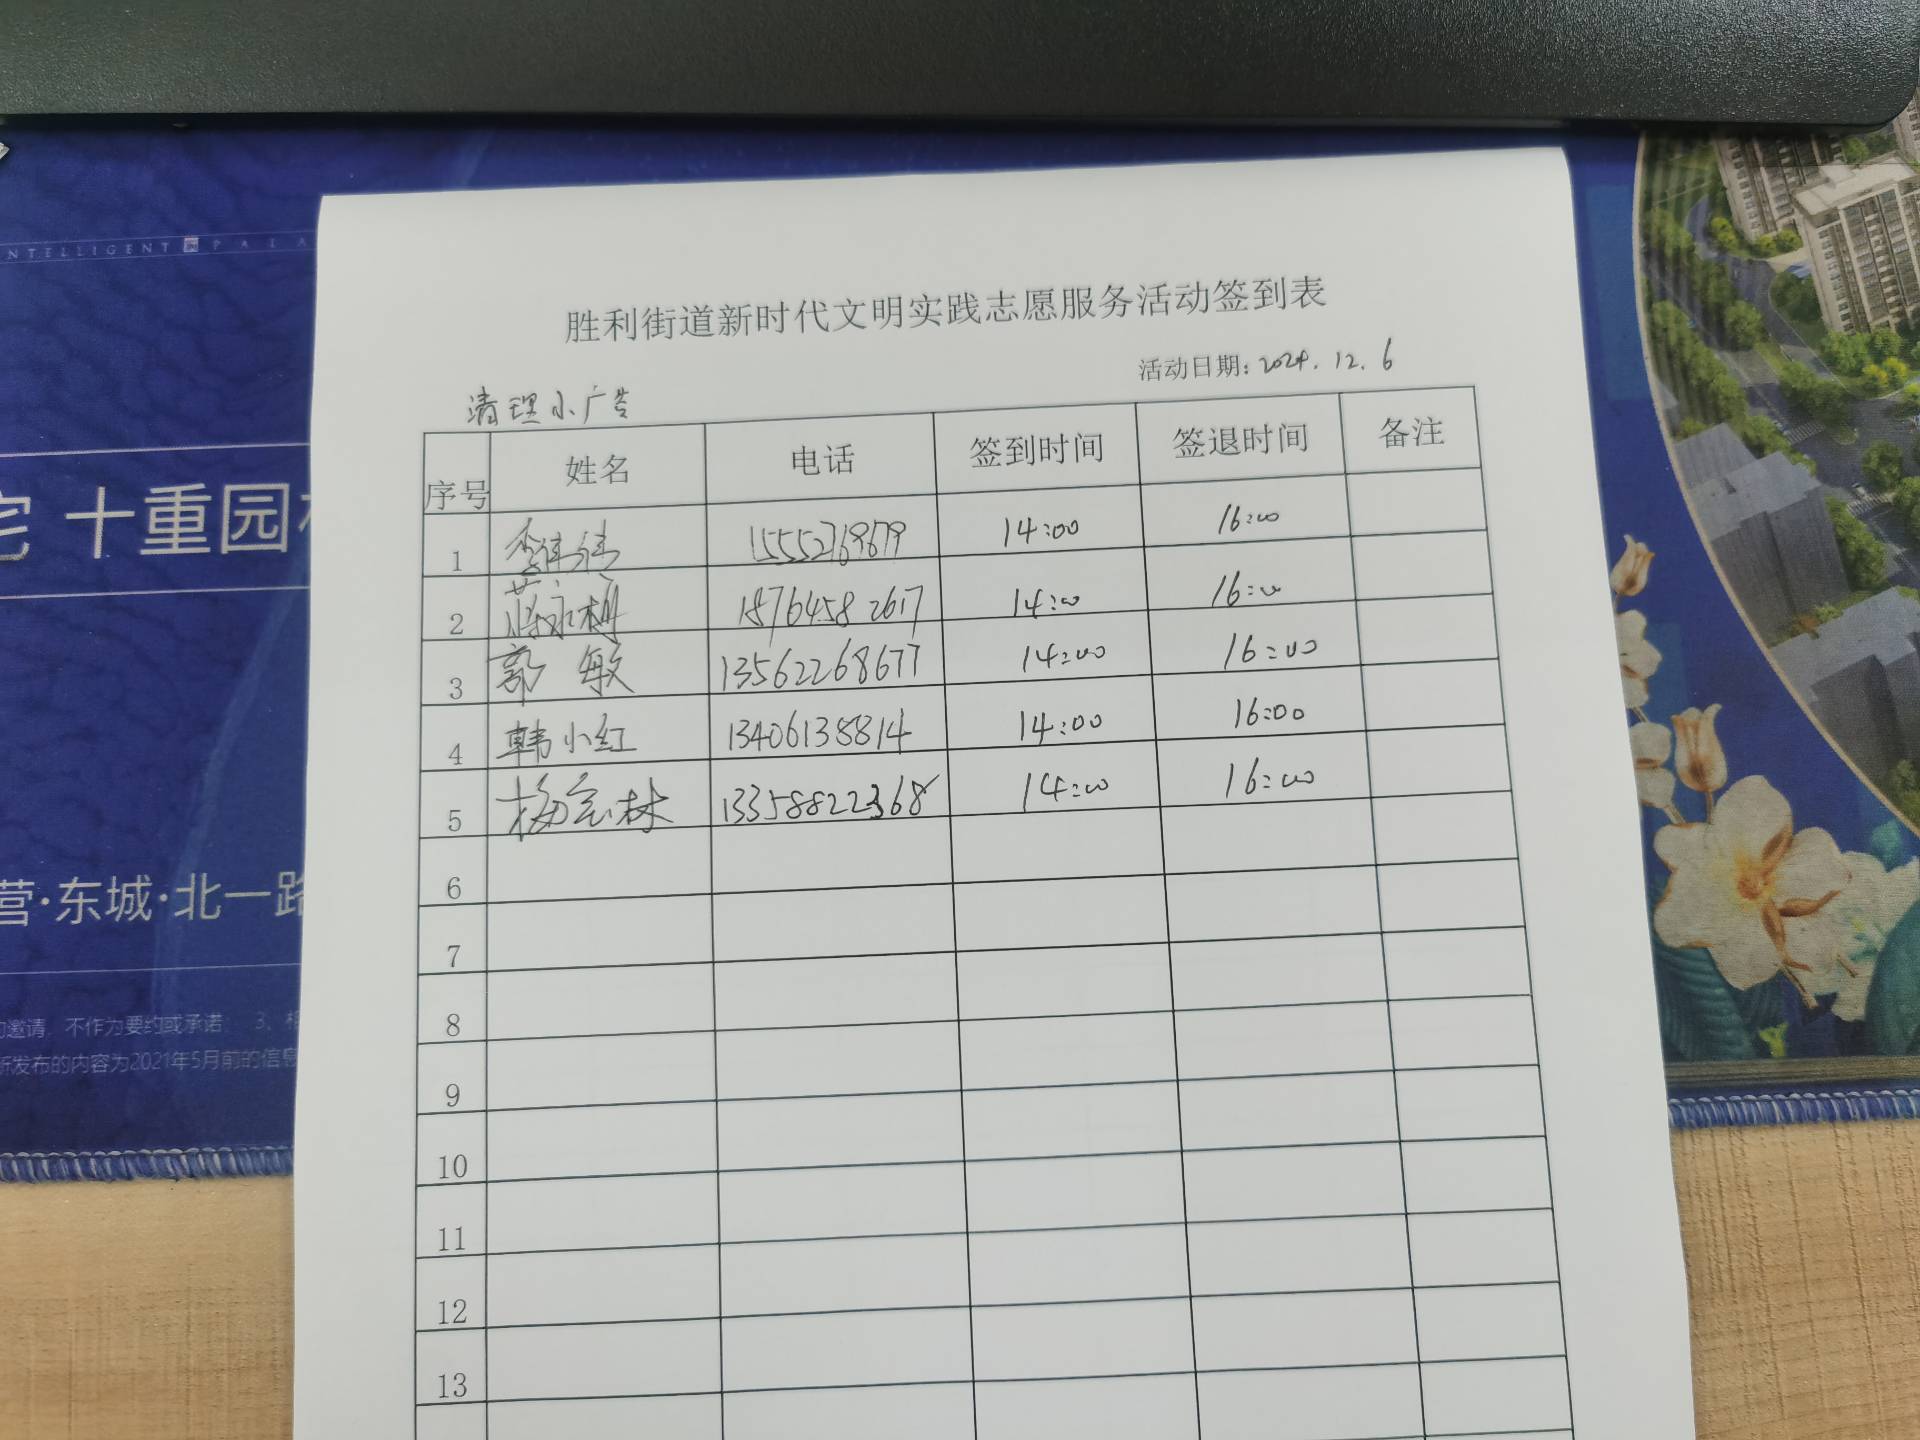 NTELLIGENT PALA
宅 十重园
营·东城·北一路
的邀请，不作为要约或承诺； 3、
所发布的内容为2021年5月前的信息
胜利街道新时代文明实践志愿服务活动签到表
活动日期: 2024.12.6
清理小广告
序号 姓名 电话 签到时间 签退时间 备注
1 李伟伟 15552769679 14:00 16:00
2 蒋永梅 18764582617 14:00 16:00
3 郭敏 13562268677 14:00 16:00
4 韩小红 13406138814 14:00 16:00
5 林 13358822368 14:00 16:00
6
7
8
9
10
11
12
13